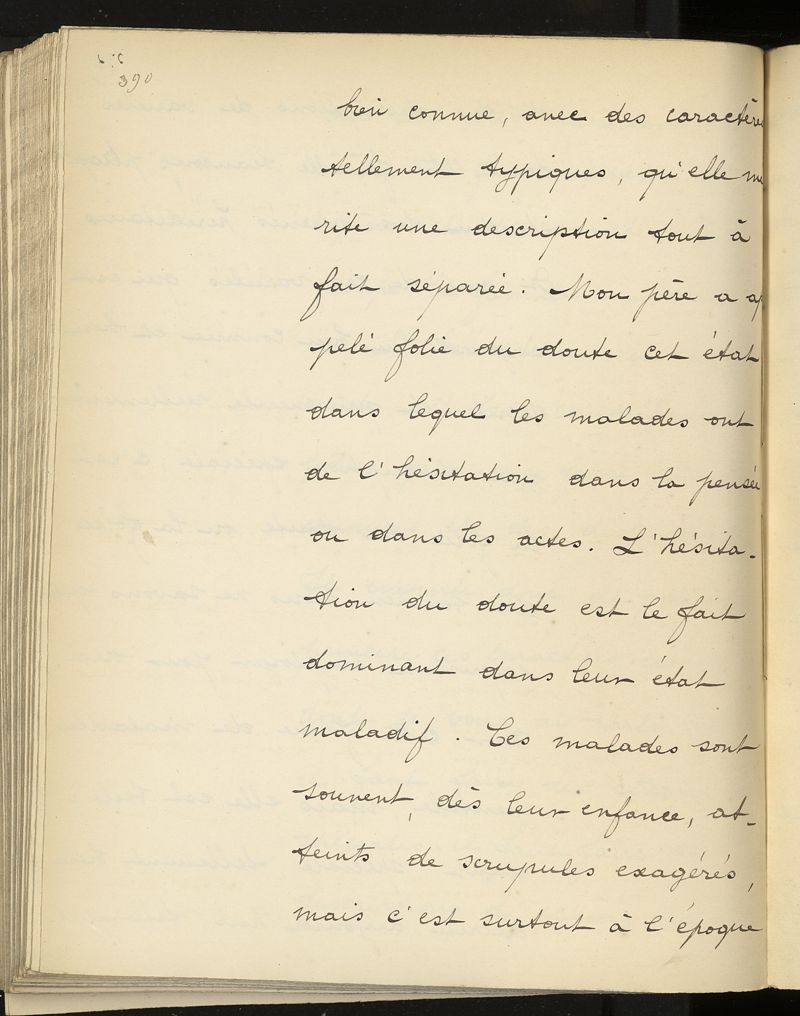 390
bien connue, avec des caractère
tellement typiques, qu'elle mé
rite une description tout à
fait séparée. Mon père a ap
pelé folie du doute cet état
dans lequel les malades ont
de l'hésitation dans la pensée
ou dans les actes. L'hésita-
tion du doute est le fait
dominant dans leur état
maladif. Ces malades sont
souvent, dès leur enfance, at-
teints de scrupules exagérés,
mais c'est surtout à l'époque